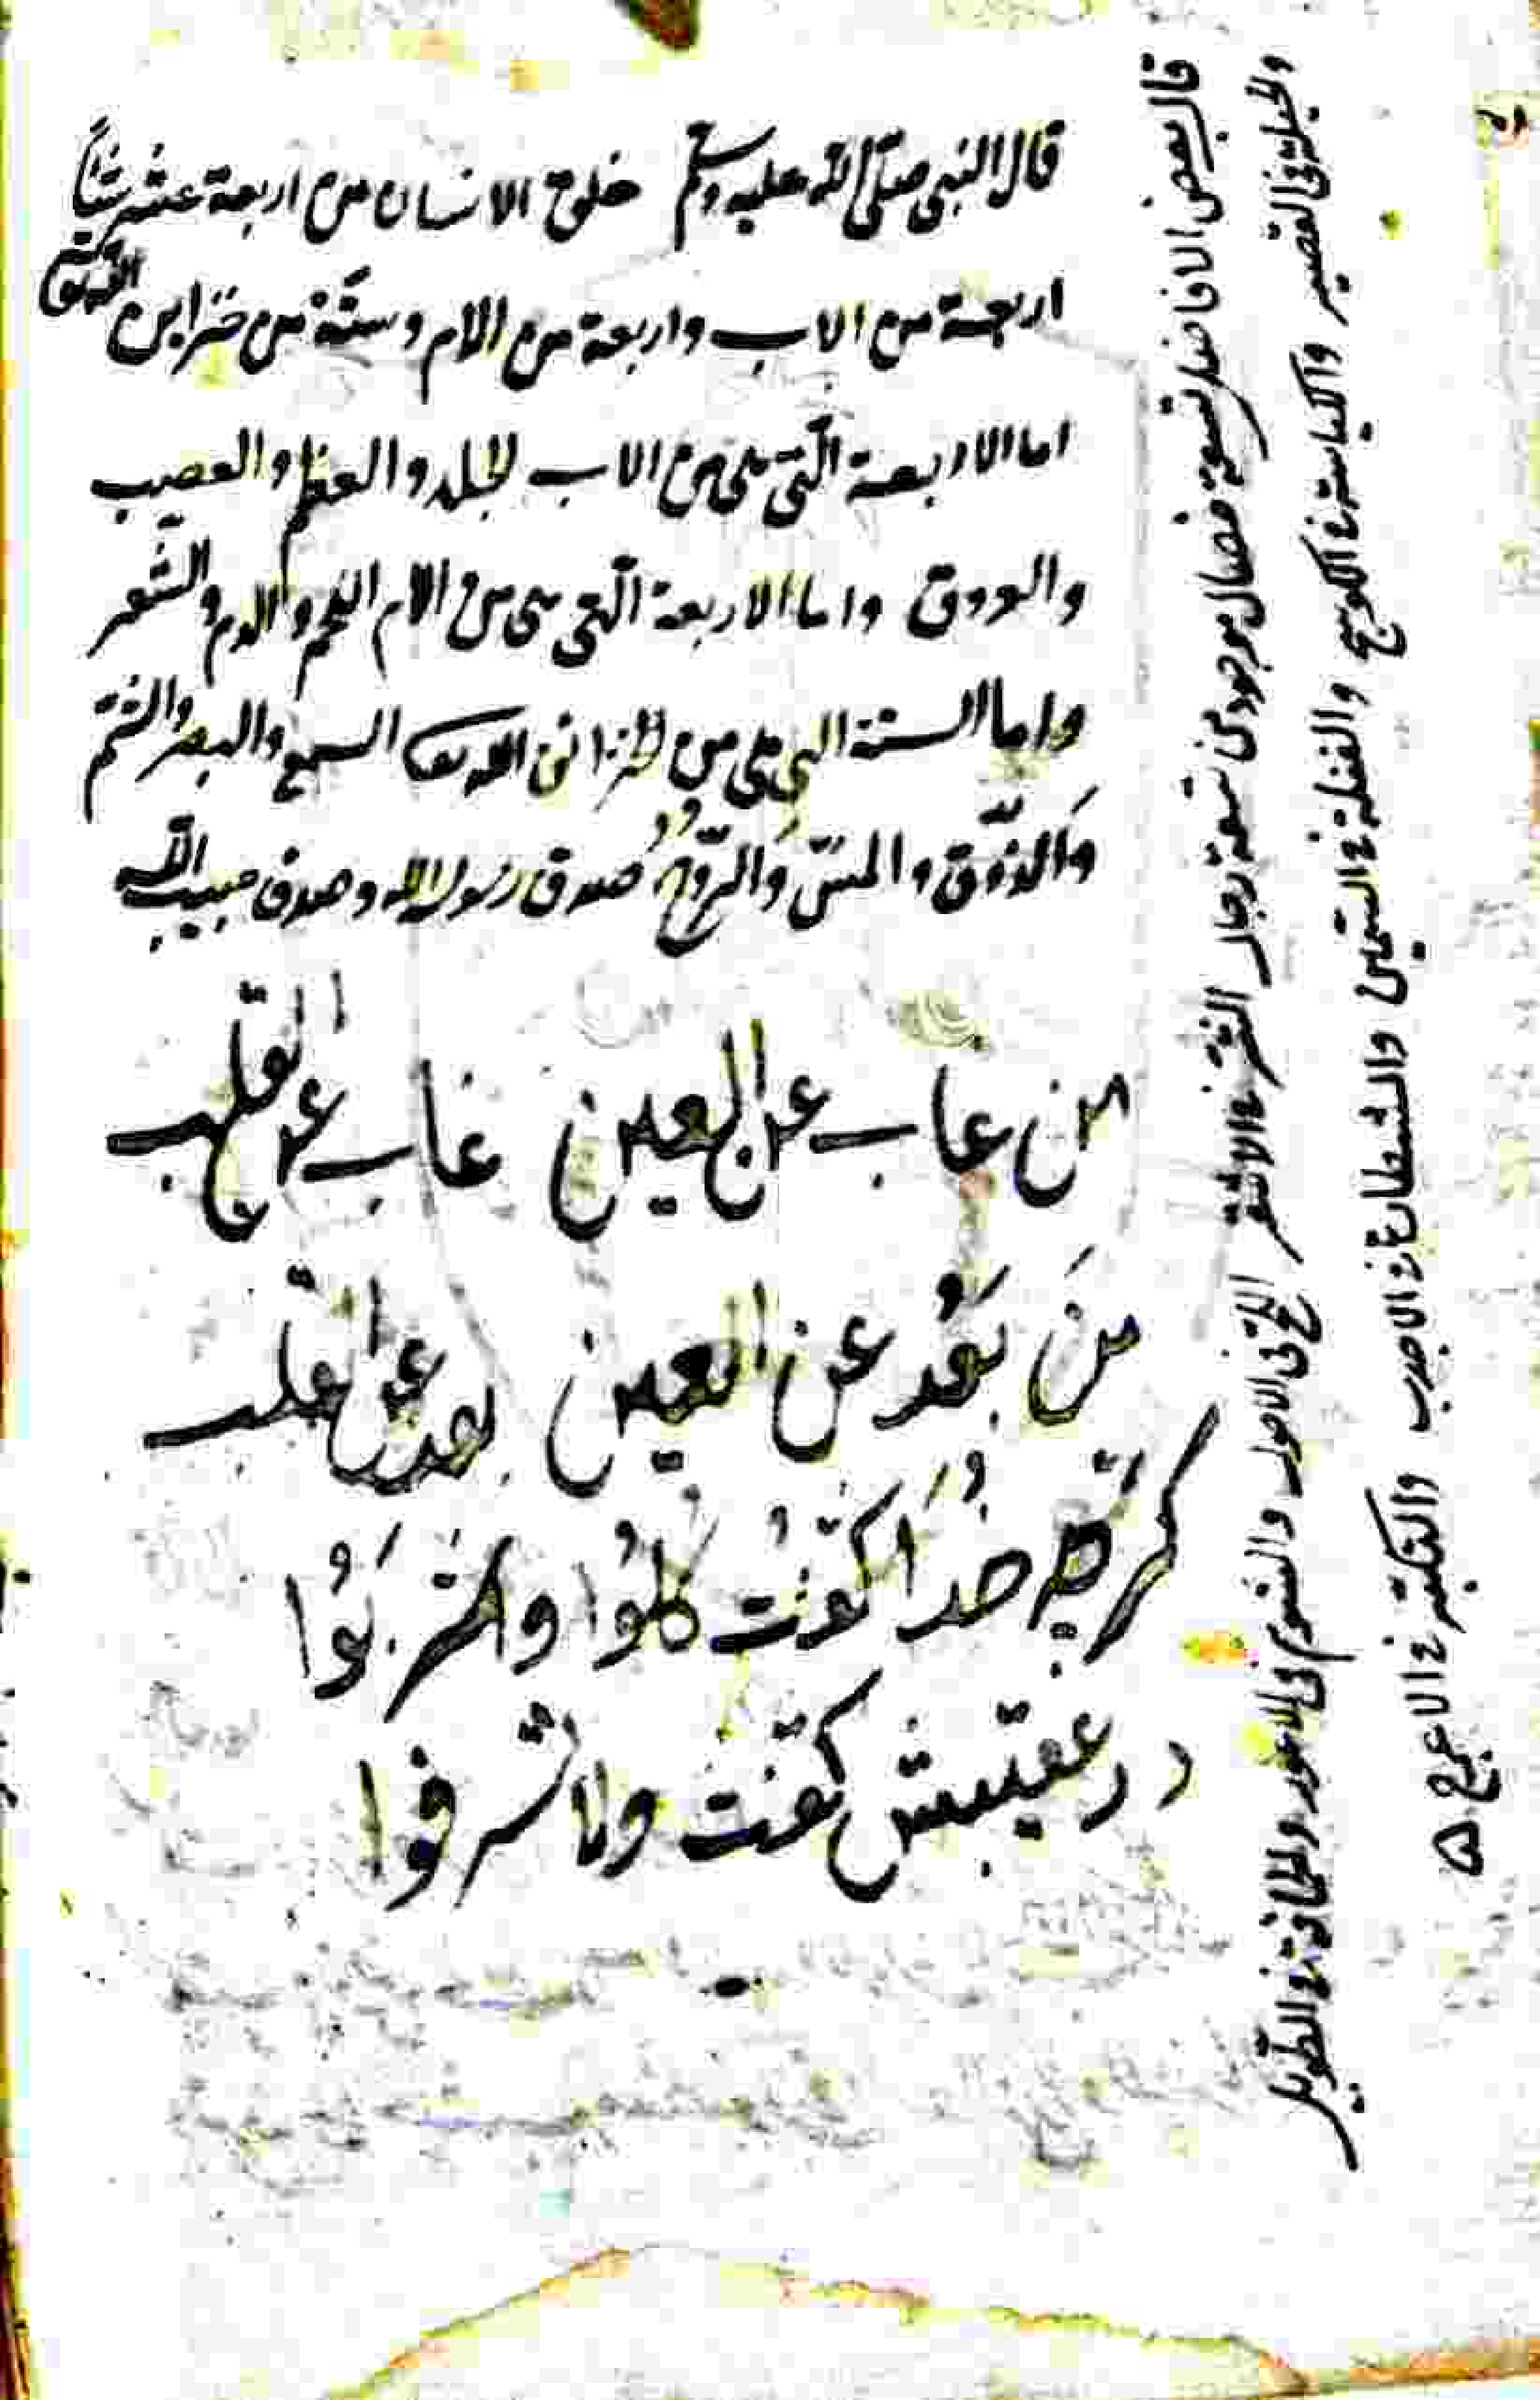 قال النبى صلى الله عليه وسلم خلق الانسان من اربعة عشر شيئاً
اربعة من الاب واربعة من الام وستة من خزاين الله تعالى
اما الاربعة التى هى من الاب الجلد والعظم والعصب
والعروق واما الاربعة التى هى من الام اللحم والدم والشعر
واما الستة التى هى من الخزائن الله تعالى السمع والبصر والشم
وَالذّوق والمسّ وَالرّوحُ صدق رسول الله وصدق حبيب الله
من غاب عن العين غاب عن القلب
مَن بَعُد عن العين بعد عن القلب
كرچه خُدَا كفتْ كلُوا واشربَوُا
در عقبش كفت ولا تسرفوا
قال بعض الافاضل تسعة خصال موجود فى تسعة رجال الشر فى الاشقر اللح فى الاحول والشوم فى الاعور والحماقة فى الطويل
والحيلة فى القصير والكياسة فى الكوسج والغفلة فى السمين والشطارة فى الاحدب والتكبر فى الاعرج